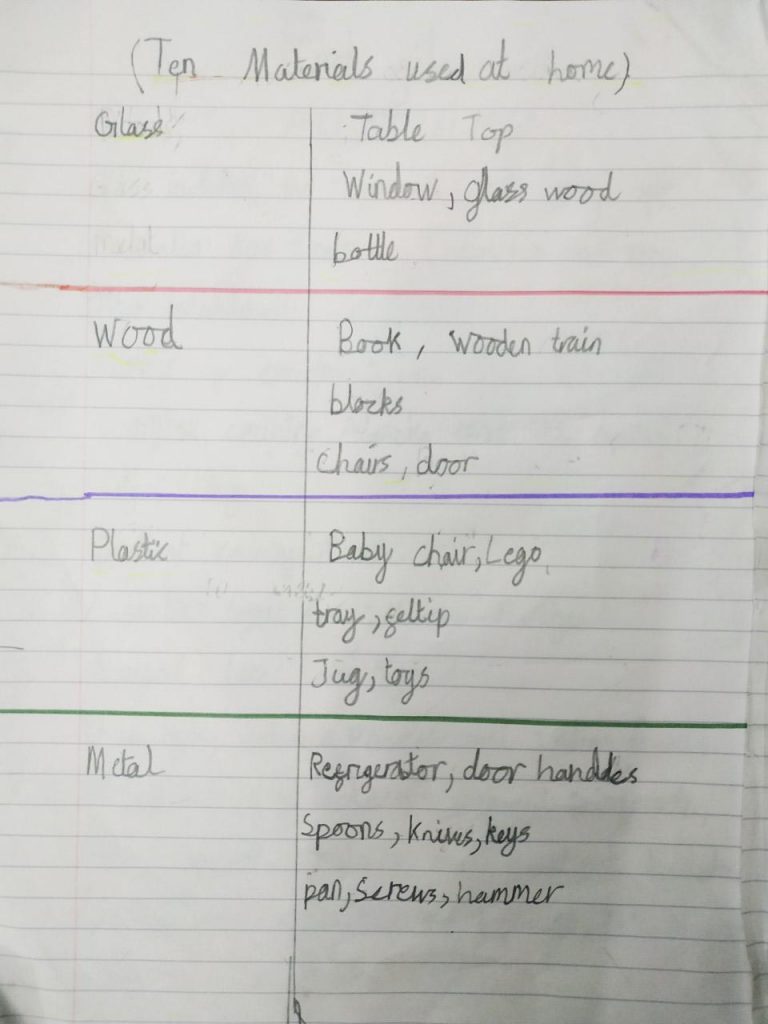 (Ten Materials used at home)
Glass
Table Top
Window, glass wood
bottle
Wood
Book, wooden train
blocks
Chairs, door
Plastic
Baby chair, Lego
tray, seltip
Jug, toys
Metal
Refrigerator, door handdes
Spoons, knives, keys
pan, Screws, hammer